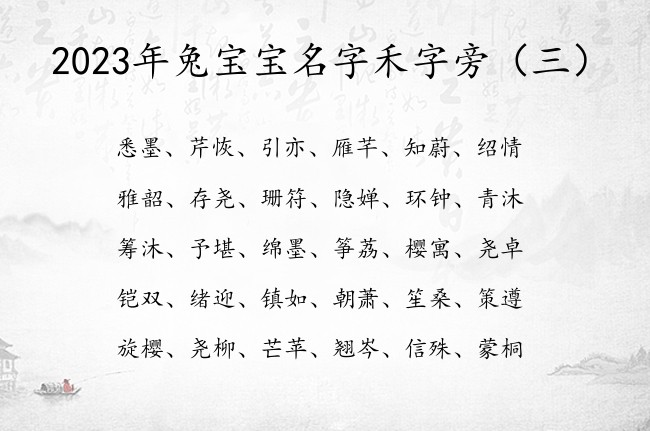 2023年兔宝宝名字禾字旁（三）
悉墨、芹恢、引亦、雁芊、知蔚、绍情
雅韶、存尧、珊符、隐婵、环钟、青沐
筹沐、予堪、绵墨、筝荔、樱寓、尧卓
铠双、绪迎、镇如、朝萧、笙桑、策遵
旋樱、尧柳、芒苹、翘岑、信殊、蒙桐